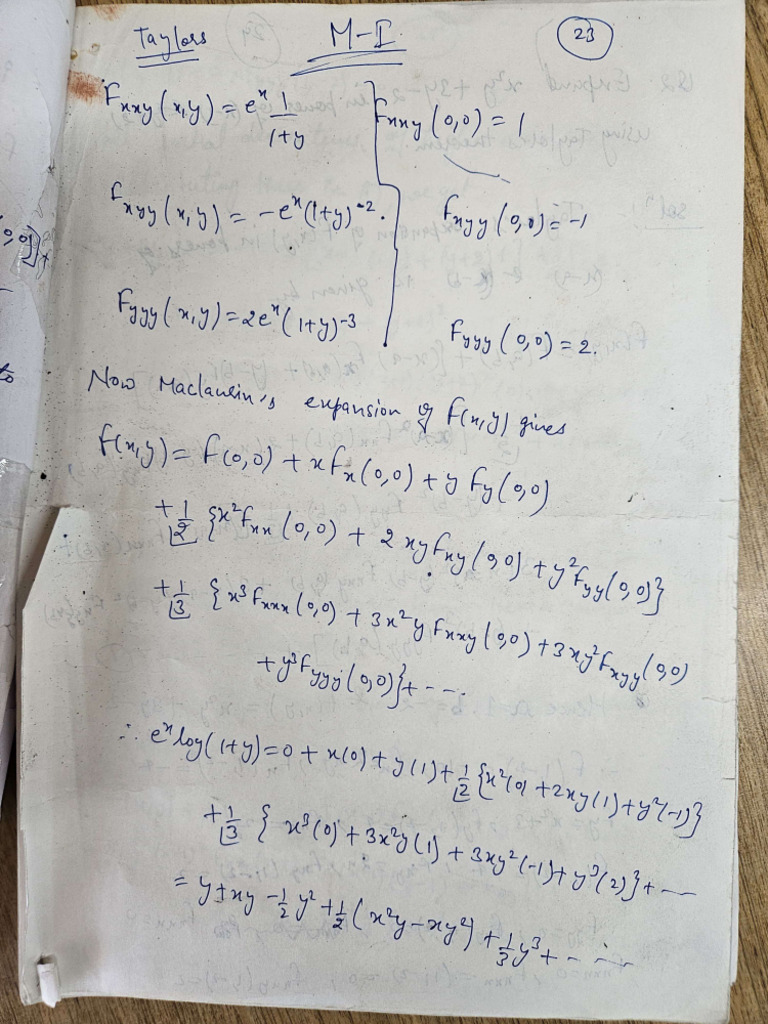 Taylors M-I 23
Fxxy (x,y) = e^x 1/(1+y) Fxxy (0,0) = 1
Fxyy (x,y) = -e^x (1+y)^-2. Fxyy (0,0) = -1
Fyyy (x,y) = 2e^x (1+y)^-3 Fyyy (0,0) = 2.
Now Maclaurin's expansion of F(x,y) gives
f(x,y) = f(0,0) + x fx (0,0) + y fy (0,0)
+ 1/⌊2 {x² fxx (0,0) + 2 xy fxy (0,0) + y² fyy (0,0)}
+ 1/⌊3 {x³ fxxx (0,0) + 3x² y fxxy (0,0) + 3xy² fxyy (0,0)
+ y³ fyyy (0,0)} + ---.
∴ e^x log(1+y) = 0 + x(0) + y(1) + 1/⌊2 {x²(0) + 2xy(1) + y²(-1)}
+ 1/⌊3 { x³(0) + 3x²y(1) + 3xy²(-1) + y³(2)} + ---
= y + xy - 1/2 y² + 1/2 (x²y - xy²) + 1/3 y³ + - - ---